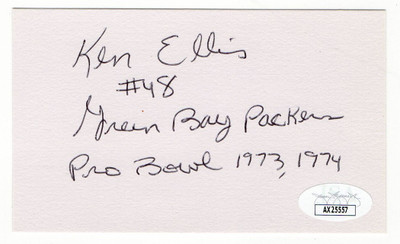 Ken Ellis
#48
Green Bay Packers
Pro Bowl 1973, 1974
AX25557